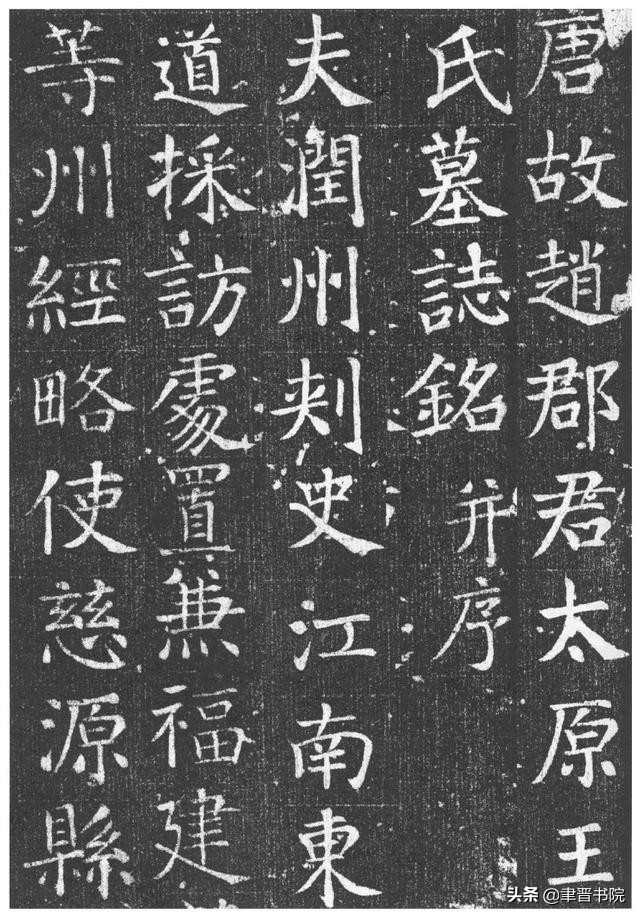 唐故趙郡君太原王
氏墓誌銘并序
夫潤州刾史江南東
道採訪處置兼福建
等州經略使慈源縣
头条 @聿晋书院